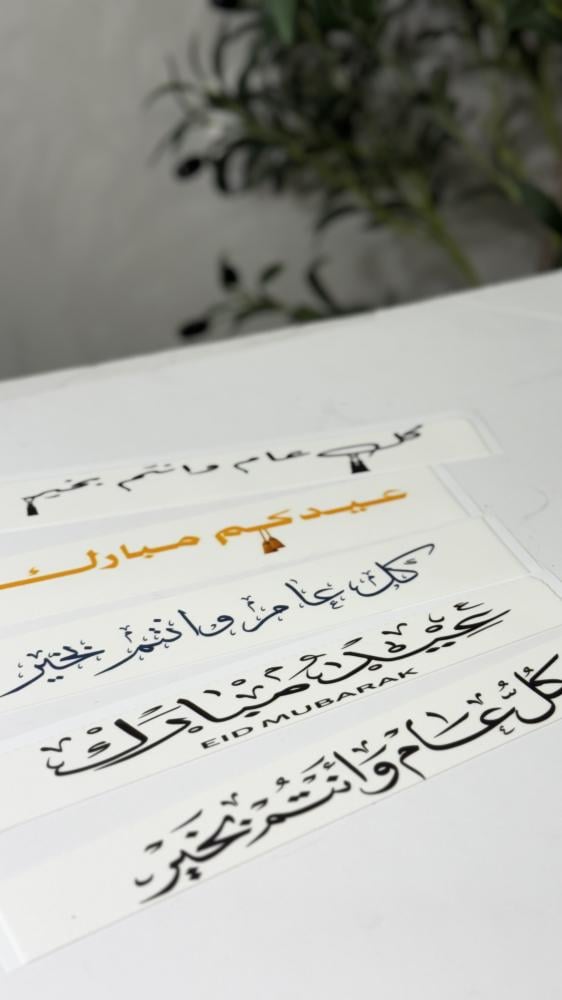 كل عام وانتم بخير
عيدكم مبارك
كل عام وانتم بخير
عيد مبارك
EID MUBARAK
كُلُّ عَام وَأَنتُم بِخَيْر